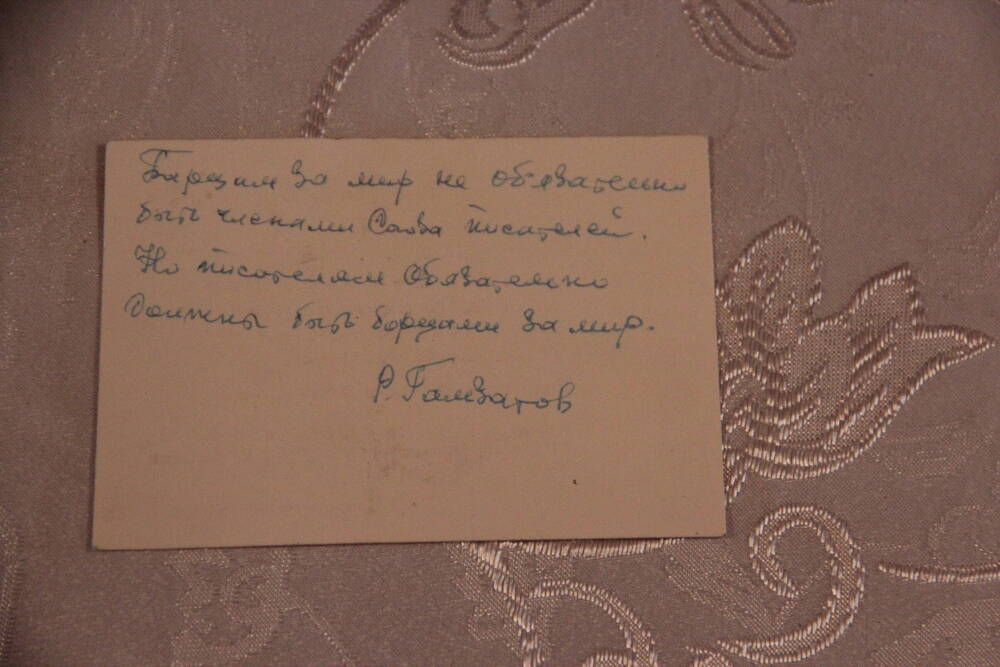 Борцам за мир не обязательно
быть членами Союза писателей.
Но писателям обязательно
должны быть борцами за мир.
Р. Гамзатов